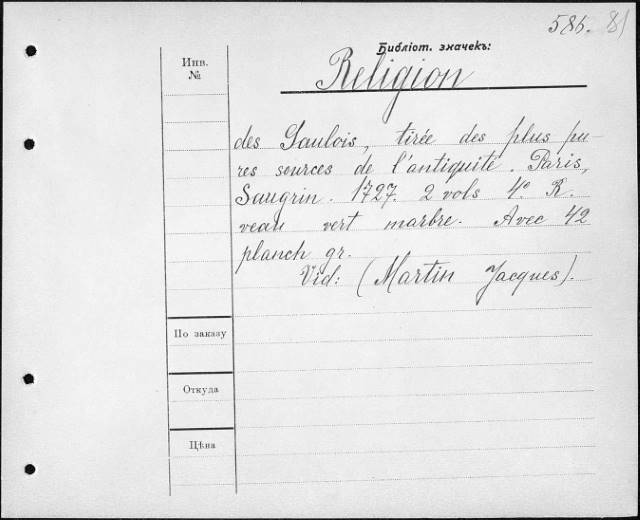 586. 81
Библіот. значекъ:
Инв.
№
Religion
des Gaulois, tirée des plus pu-
res sources de l'antiquité. Paris,
Saugrin. 1727. 2 vols 4º. R.
veau vert marbre. Avec 42
planch gr.
Vid: (Martin Jacques).
По заказу
Откуда
Цѣна